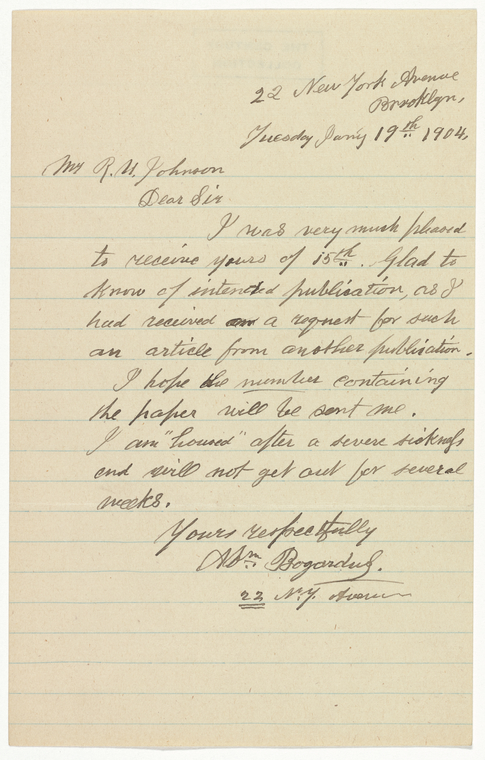 22 New York Avenue
Brooklyn,
Tuesday Jan'y 19th 1904,
Mr R. U. Johnson
Dear Sir
I was very much pleased
to receive yours of 15th. Glad to
know of intended publication, as I
had received a request for such
an article from another publication.
I hope the number containing
the paper will be sent me.
I am "housed" after a severe sickness
and will not get out for several
weeks.
Yours respectfully
Abm Bogardus.
22 N.Y. Avenue